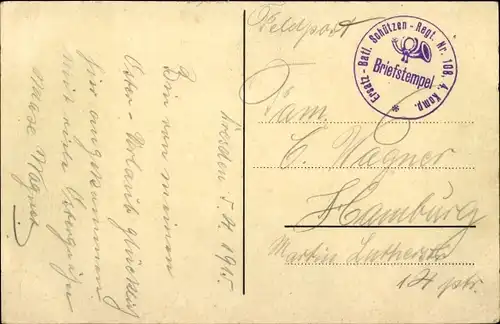 Feldpost
Ersatz-Batl. Schützen-Regt. Nr. 108. 4. Komp.
Briefstempel
Fam.
C. Wagner
Hamburg
Martin Lutherstr
14 ptr.
Dresden 5.4.1915.
Bin von meinem
Oster-Urlaub glücklich
hier angekommen.
Mit vielen Ostergrüßen
Max Wagner